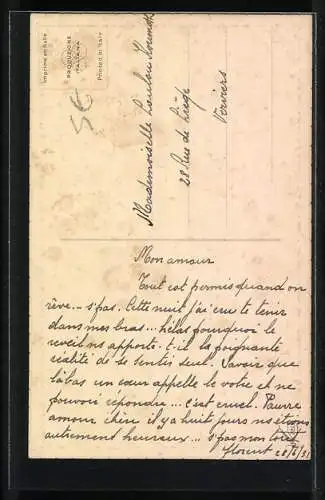 Imprimé en Italie
PRODUZIONE
ITALIANA
Printed in Italy
5€
Mademoiselle Loulou
28 Rue de Liège
Verviers
Mon amour
Tout est permis quand on
rêve... s'pas. Cette nuit j'ai cru te tenir
dans mes bras... hélas pourquoi le
réveil ns apporte-t-il la poignante
réalité de se sentir seul. Savoir que
là bas un cœur appelle le votre et ne
pouvoir répondre... c'est cruel. Pauvre
amour chéri il y a huit jours ns étions
autrement heureux... s'pas mon
Florent